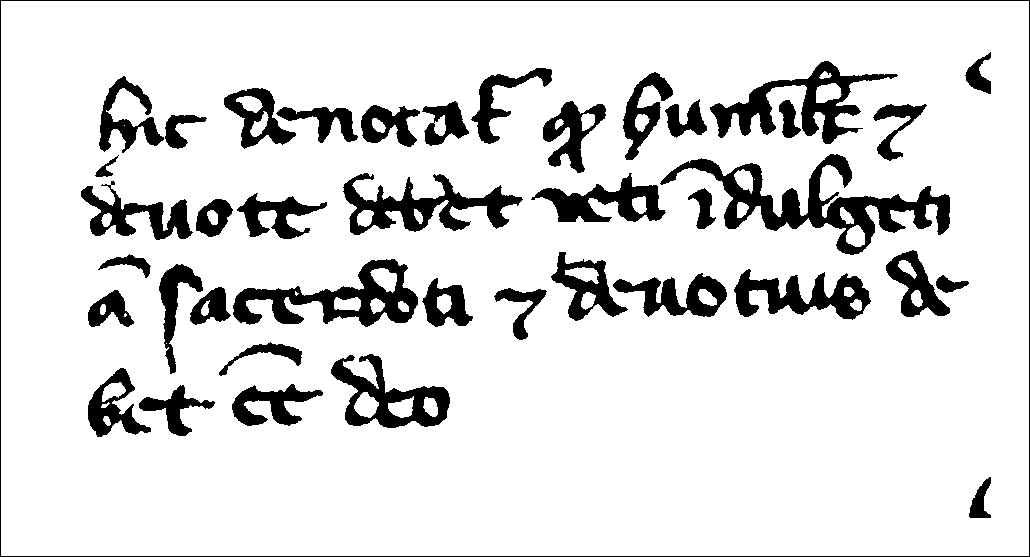 hic denotat᷑ ꝙ humilit̅ ⁊
deuote debet peti īdulgeti
ā sacerdoti ⁊ deuotus de
bet eē deo